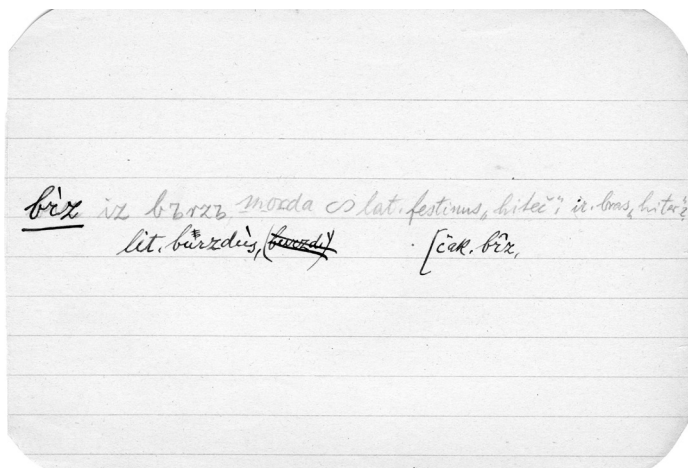 bȉz iz bъrzъ, morda ∞ lat. festinus „hiteč“; ir. bras „hiter“;
lit. burzdùs, (burzdì) [čak. bȋz,